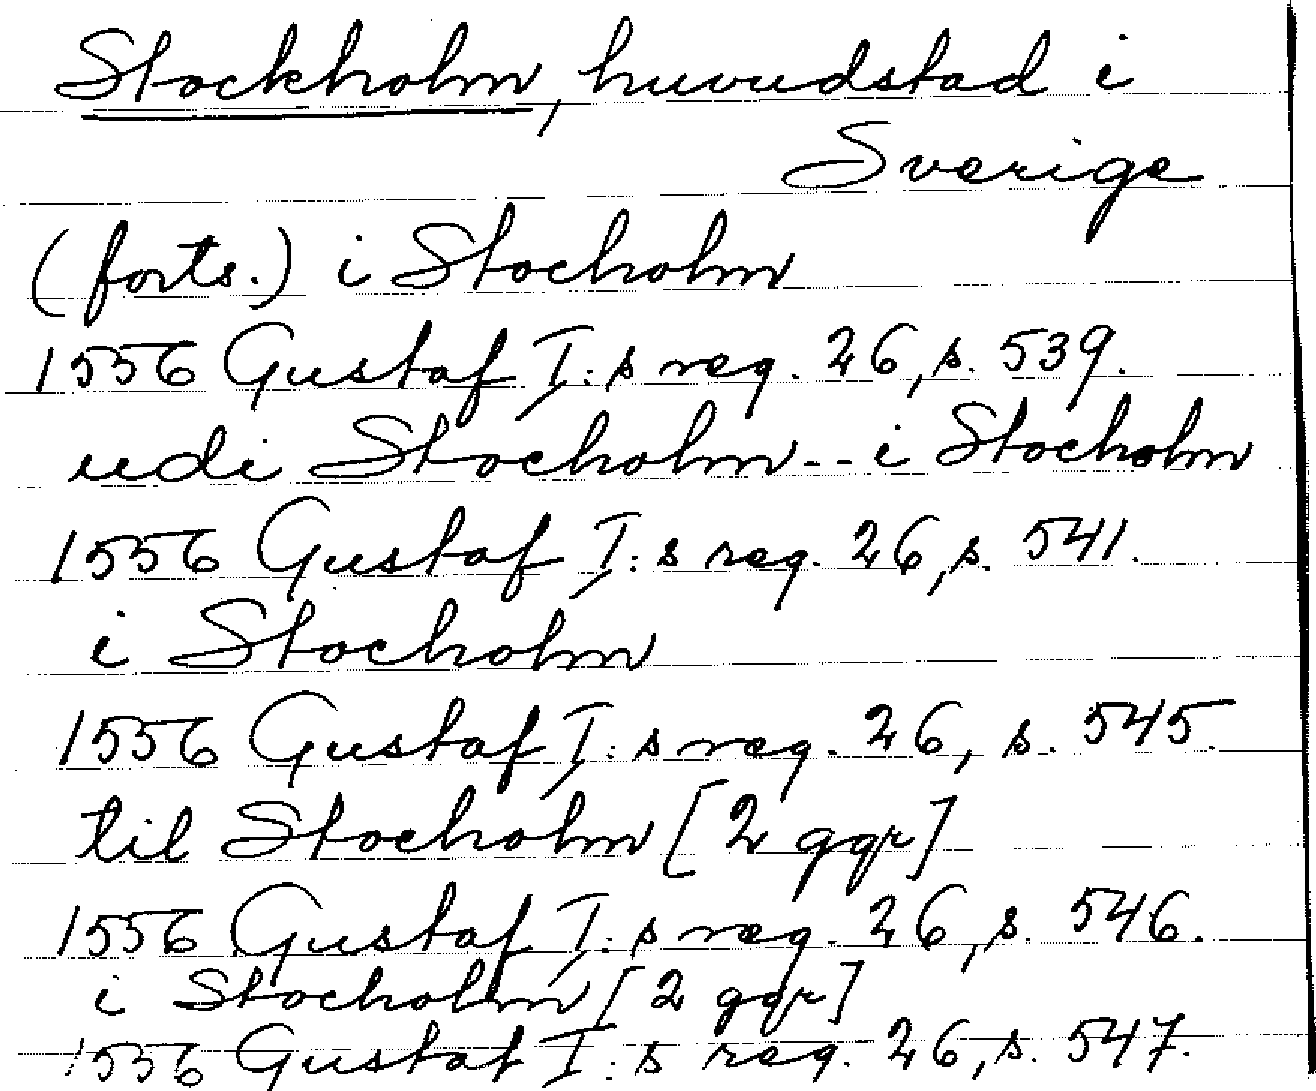 Stockholm, huvudstad i
Sverige
(forts.) i Stocholm
1556 Gustaf I:s reg. 26, s. 539.
udi Stocholm -- i Stocholm
1556 Gustaf I:s reg. 26, s. 541.
i Stocholm
1556 Gustaf I:s reg. 26, s. 545.
til Stocholm [2 ggr]
1556 Gustaf I:s reg. 26, s. 546.
i Stocholm [2 ggr]
1556 Gustaf I:s reg. 26, s. 547.